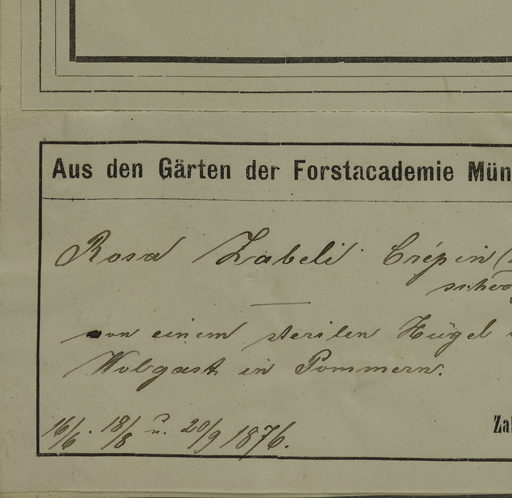 Aus den Gärten der Forstacademie Mün
Rosa Zabeli Crépin (
von einem sterilen Hügel
Wolgast in Pommern.
16/6. 18/8 u. 20/9 1876.
Zal